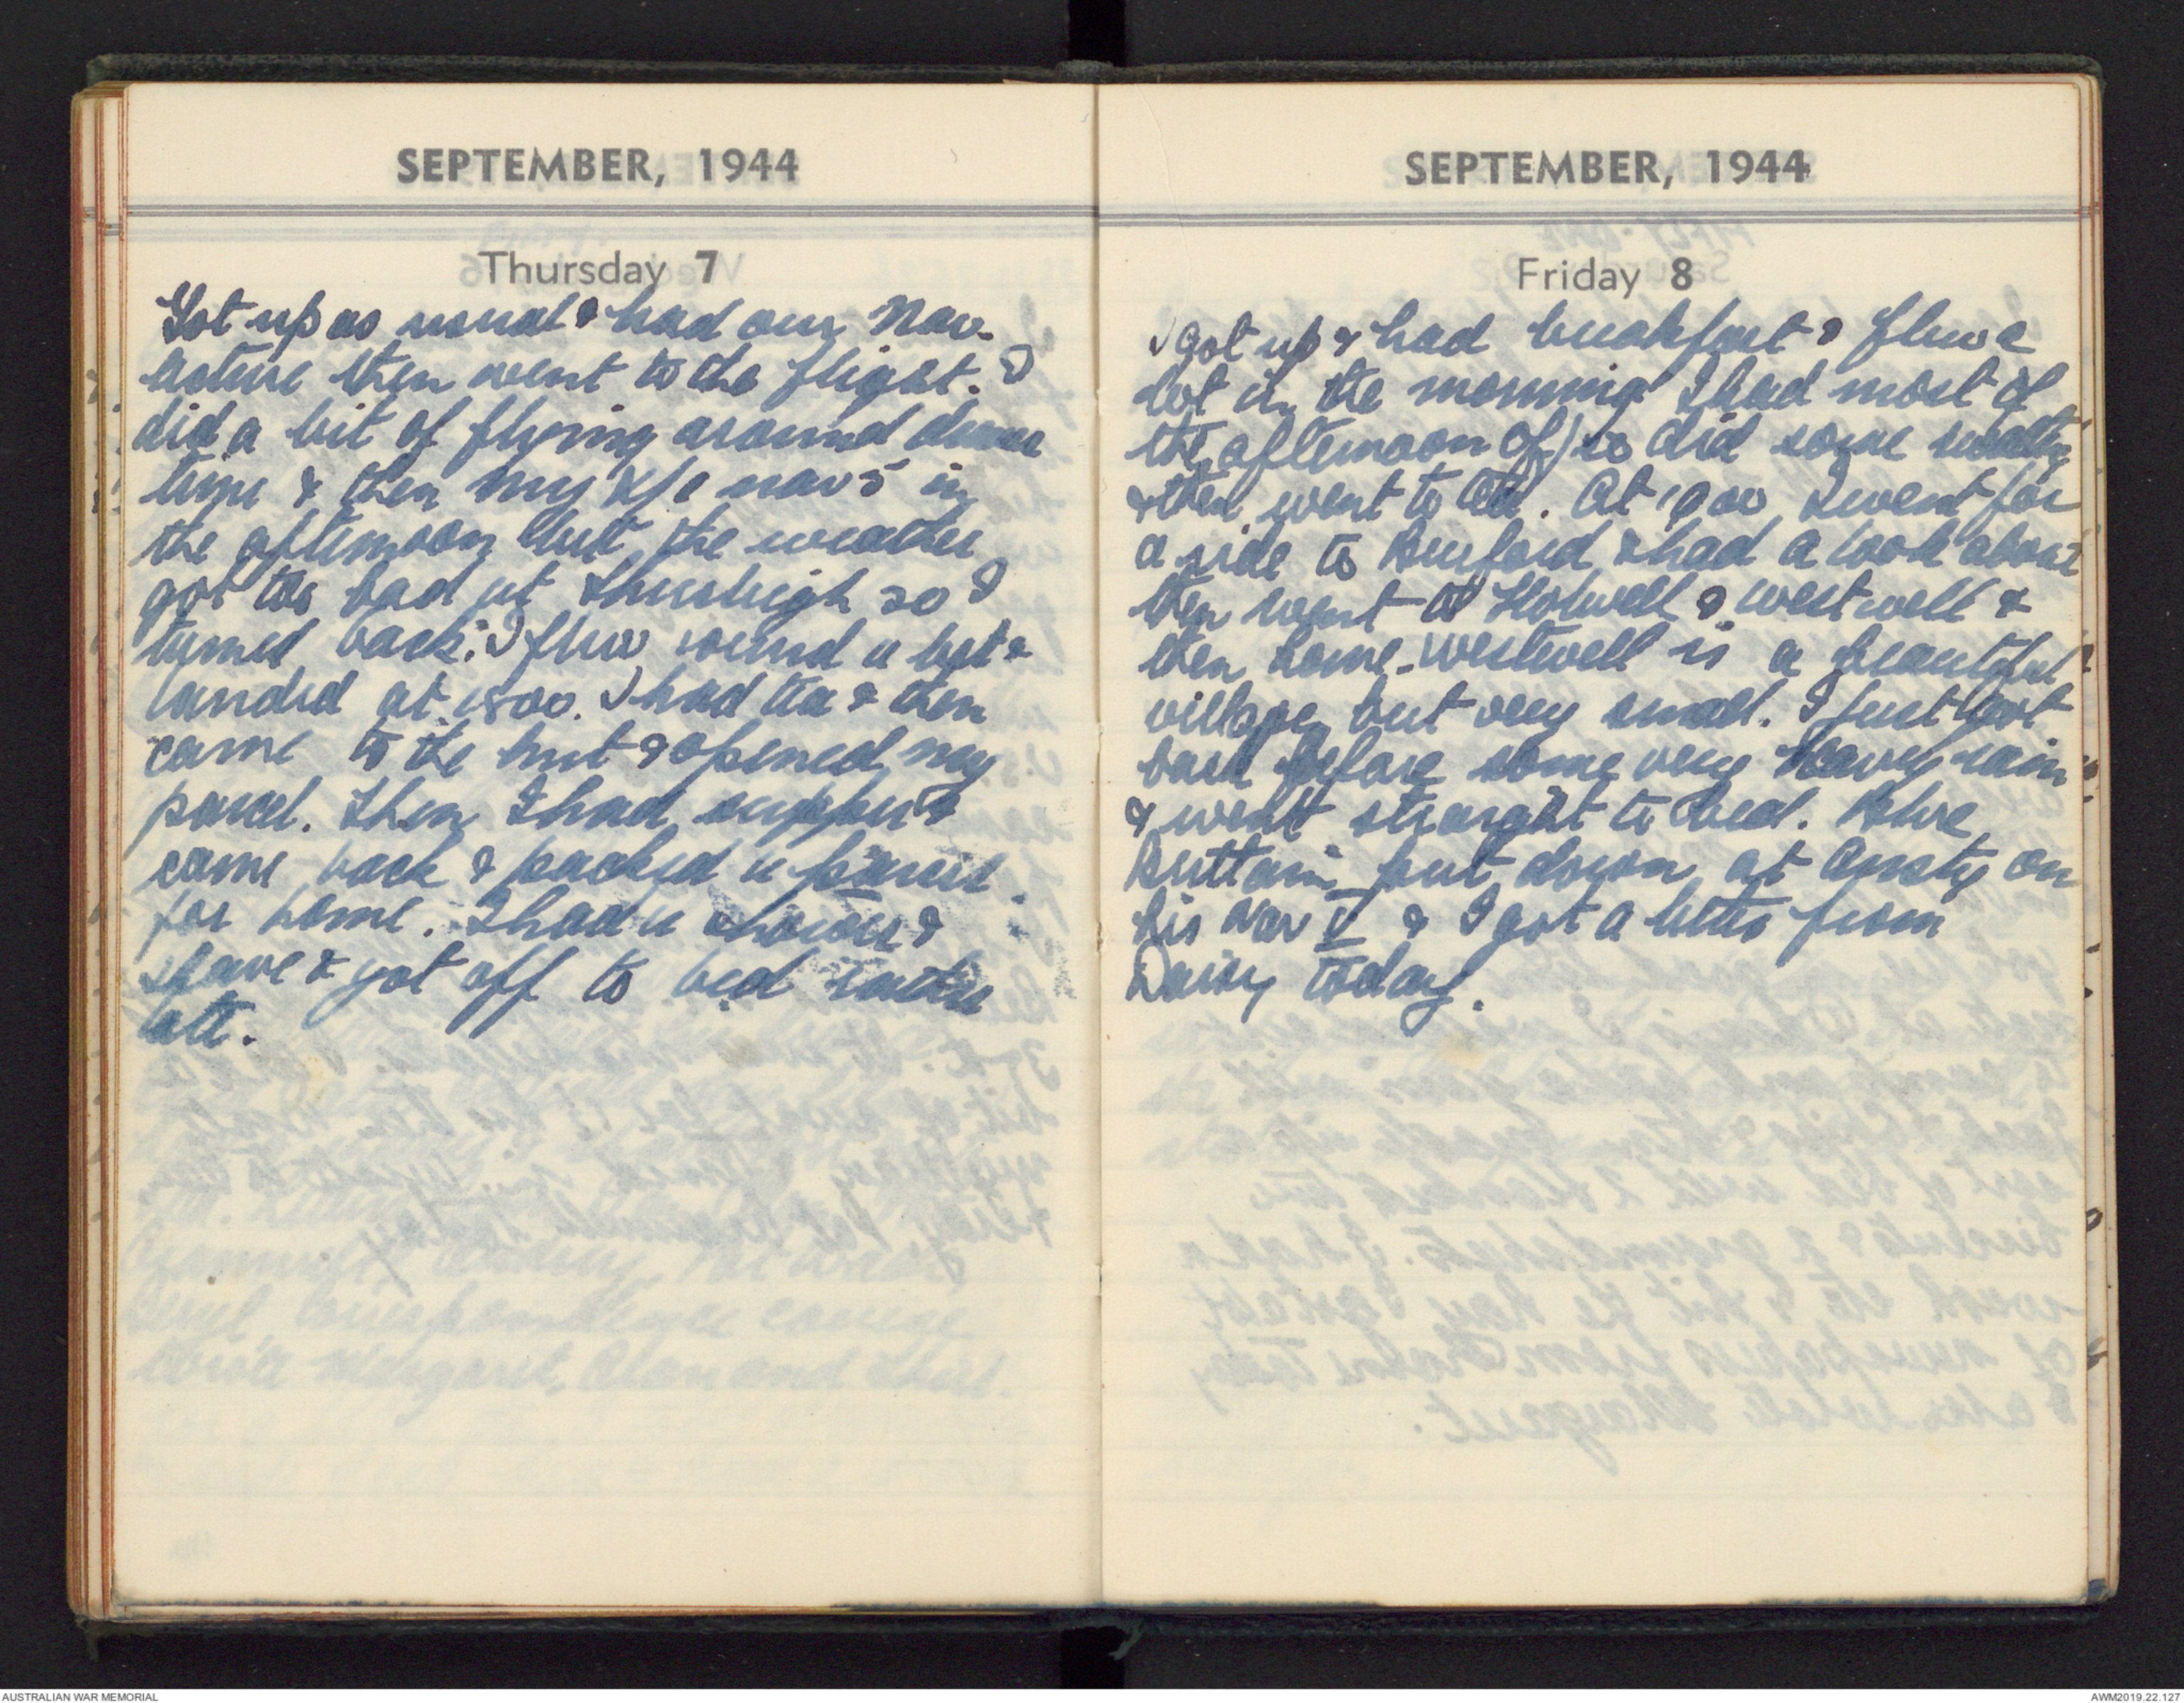 SEPTEMBER, 1944
Thursday 7
Got up as usual & had our Nav.
lecture then went to the flight. I
did a bit of flying around dinner
time & then my X/C nav 5 in
the afternoon but the weather
got too bad at Thurleigh so I
turned back. I flew round a bit &
landed at 1500. I had tea & then
came to the hut & opened my
parcel. Then I had supper &
came back & packed a parcel
for home. I had a shower &
shave & got off to bed rather
late.
SEPTEMBER, 1944
Friday 8
I got up & had breakfast & flew a
lot in the morning I had most of
the afternoon off so did some
& then went to tea. At 1900 I went for
a ride to Burford & had a look about
then went to Holwell & Westwell &
then home. Westwell is a beautiful
village but very small. I just got
back before some very heavy rain
& went straight to bed.
Brittain put down at Ansty on
his Nav V & I got a letter from
Daisy today.
AUSTRALIAN WAR MEMORIAL
AWM2019.22.127